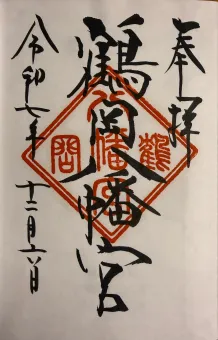 奉拝
鶴岡八幡宮
令和七年 十二月六日
鶴岡八幡宮